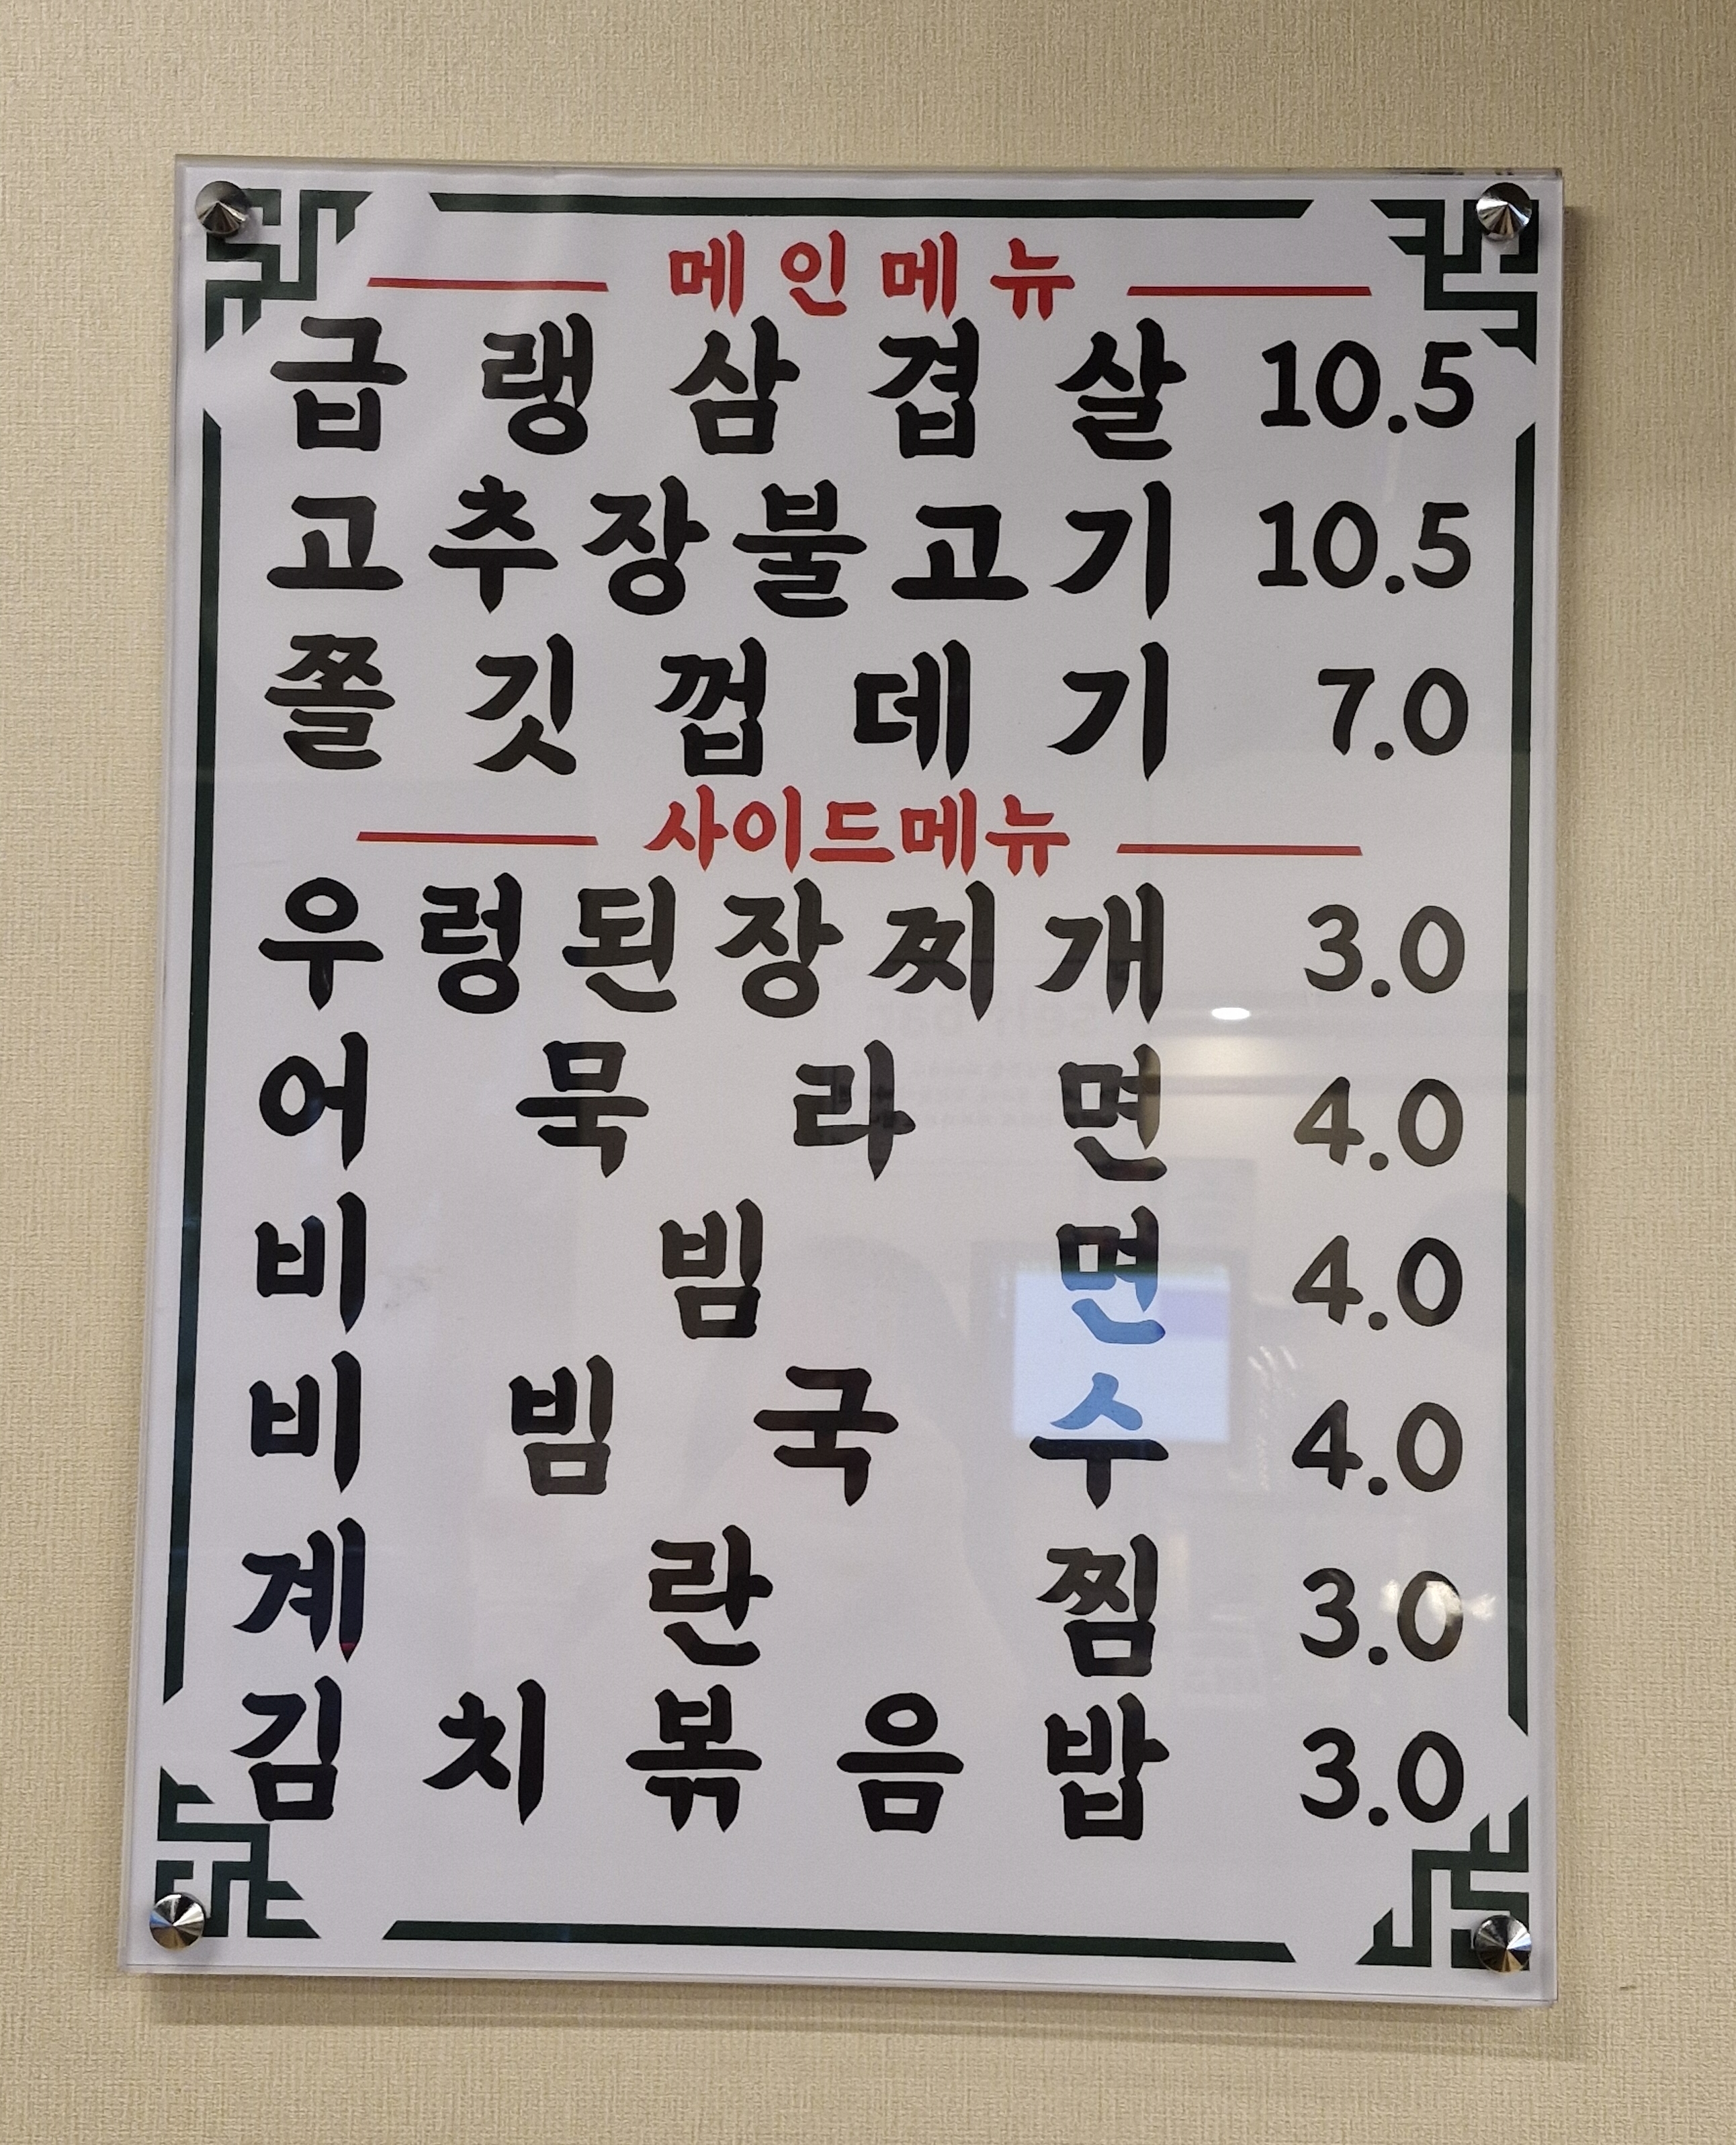 메인메뉴
급랭삼겹살 10.5
고추장불고기 10.5
쫄깃껍데기 7.0
사이드메뉴
우렁된장찌개 3.0
어묵라면 4.0
비빔면 4.0
비빔국수 4.0
계란찜 3.0
김치볶음밥 3.0